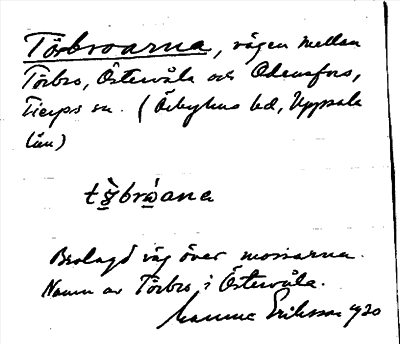 Törbroarna, vägen mellan
Törbo, Östervåla och Odensfors,
Tierps sn. (Örbyhus hd, Uppsala
län)
tö̀brò̤ana
Brolagd väg över mossarna.
Namn av Törbo i Östervåla.
Manne Eriksson 1920